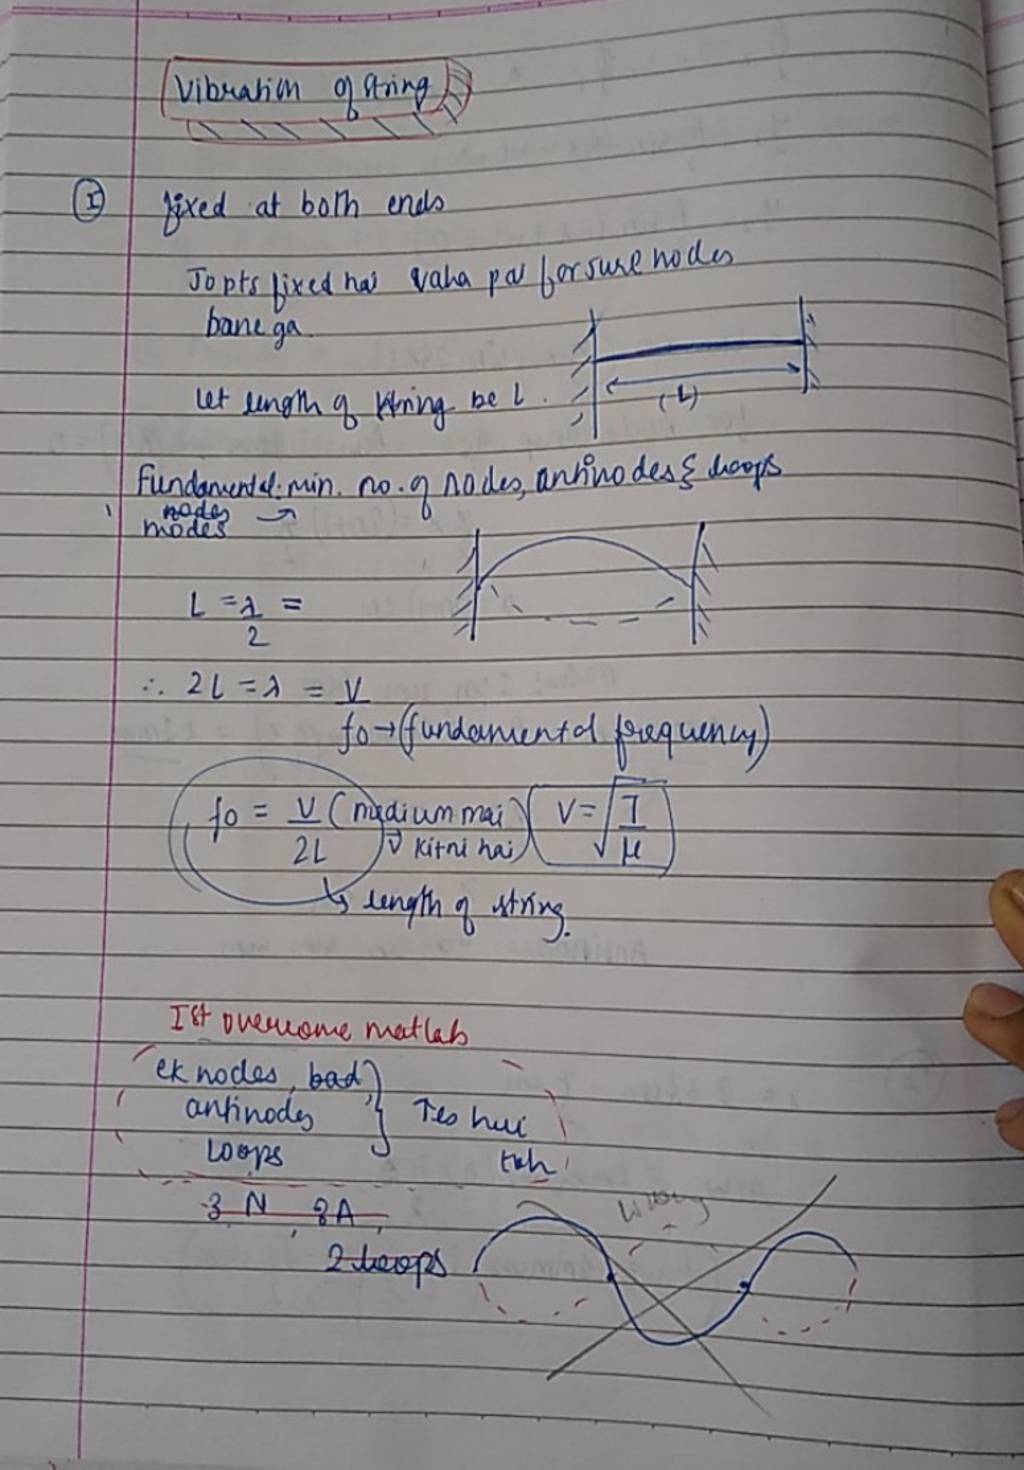 Vibration of string
I fixed at both ends
Jo pts fixed hai vaha par for sure nodes
banega.
Let length of string be L.
(L)
Fundamental: min. no. of nodes, antinodes & loops
nodes →
modes
L = λ/2 =
∴ 2L = λ = V/f0 → (fundamental frequency)
f0 = V/2L (medium mai V kitni hai) V = √T/μ
↳ length of string.
Ist overtone matlab
ek nodes, bad
antinodes
Loops
} Tes hui
toh
3 N, 8A,
2 loops
wrong